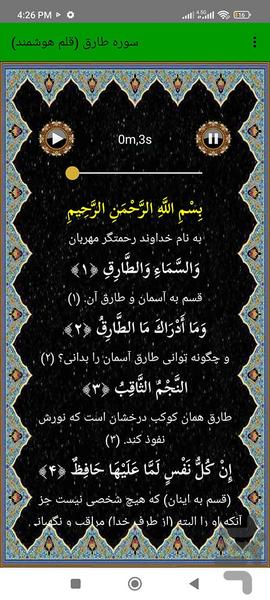 4:26 PM
4.5G
16
سوره طارق (قلم هوشمند)
0m,3s
بِسْمِ اللَّهِ الرَّحْمَنِ الرَّحِيمِ
به نام خداوند رحمتگر مهربان
وَالسَّمَاءِ وَالطَّارِقِ ﴿۱﴾
قسم به آسمان و طارق آن. (۱)
وَمَا أَدْرَاكَ مَا الطَّارِقُ ﴿۲﴾
و چگونه توانی طارق آسمان را بدانی؟ (۲)
النَّجْمُ الثَّاقِبُ ﴿۳﴾
طارق همان کوکب درخشان است که نورش
نفوذ کند. (۳)
إِنْ كُلُّ نَفْسٍ لَمَّا عَلَيْهَا حَافِظٌ ﴿۴﴾
(قسم به اینان) که هیچ شخصی نیست جز
آنکه او را البته (از طرف خدا) مراقب و نگهبانی